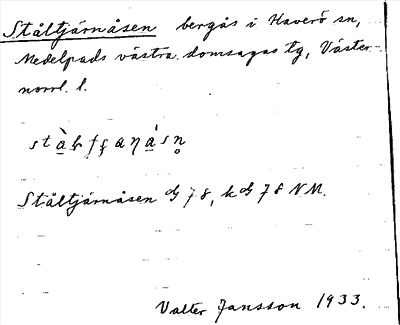 Ståltjärnåsen bergås i Haverö sn,
Medelpads västra domsagas tg, Väster-
norrl. l.
Ståltjärnåsen dg 78, k dg 78 NM.
Valter Jansson 1933.